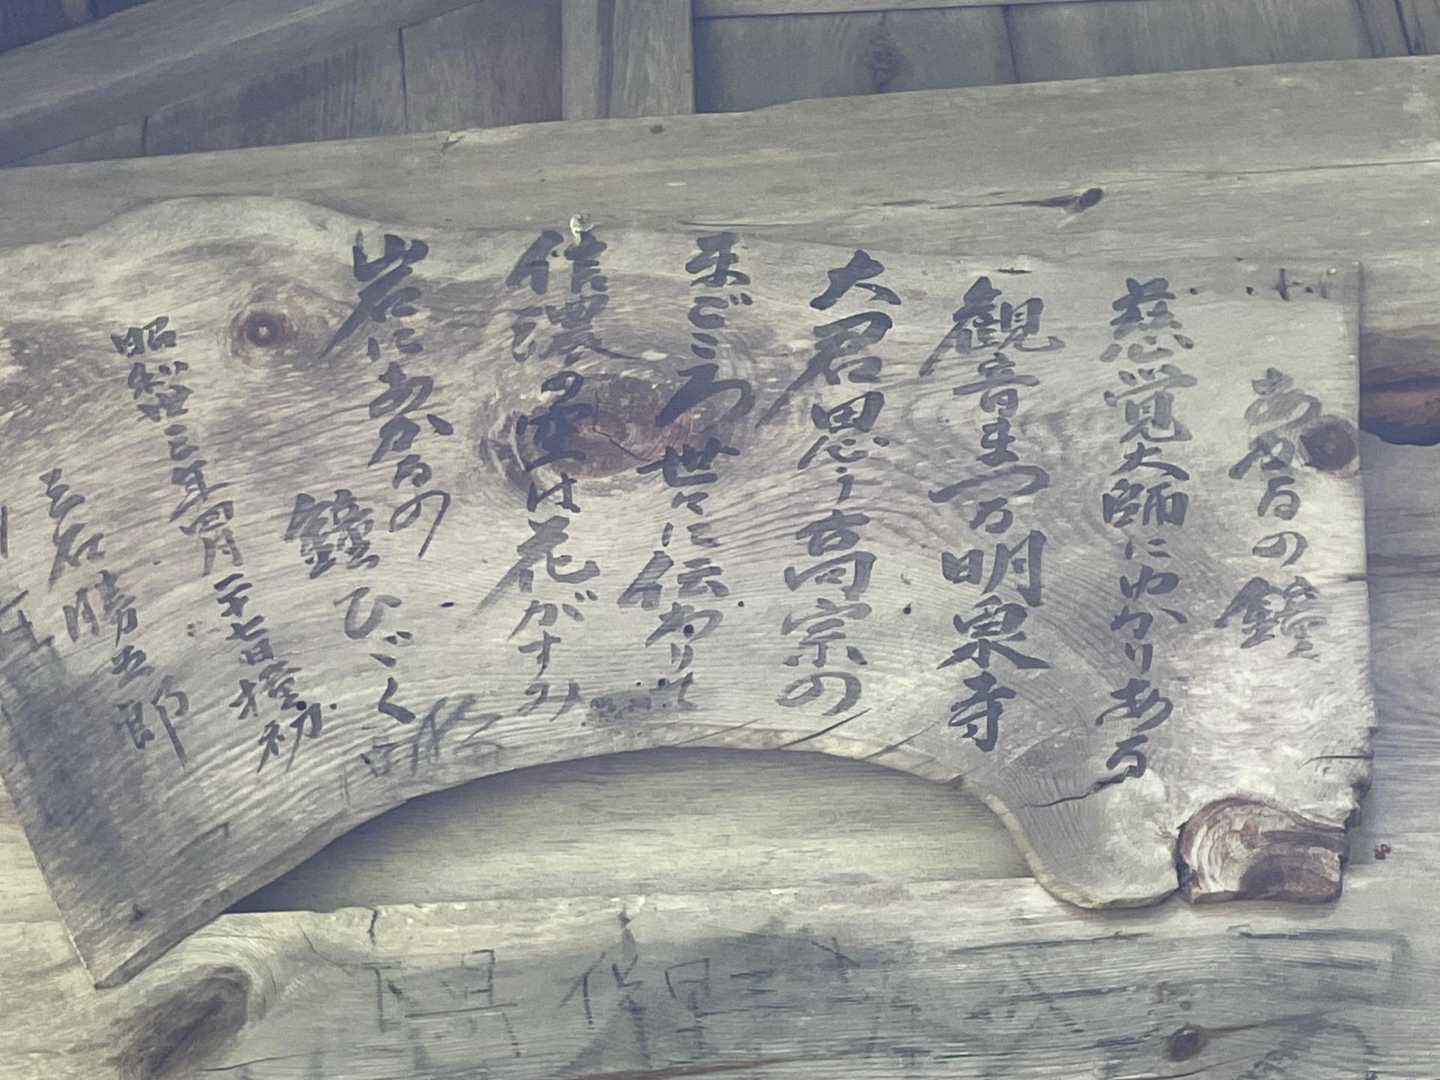 あかるの鐘
慈覚大師にゆかりある
観音まつる明泉寺
大君思う高宗の
まごころ世々に伝わりて
信濃の里は花がすみ
岩にあかるの
鐘ひゞく
昭和三年四月二十七日撞初
石勝五郎